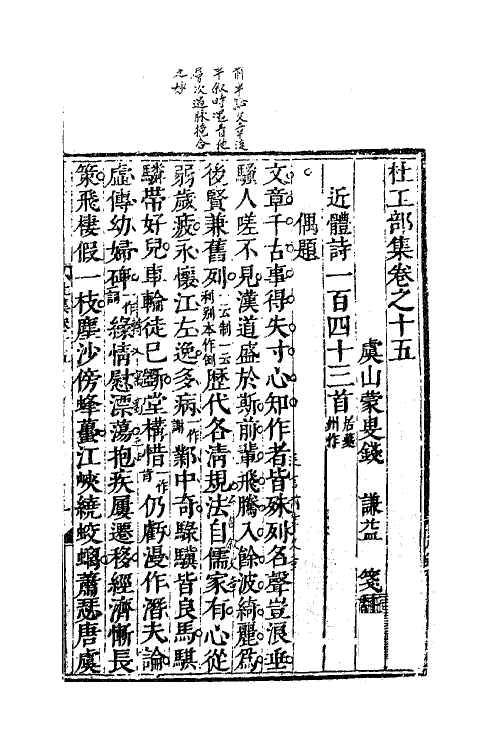 杜工部集卷之十五
虞山蒙叟錢 謙益 箋註
近體詩一百四十三首居夔州作
偶題
文章千古事得失寸心知作者皆殊列名聲豈浪垂
騷人嗟不見漢道盛於斯前輩飛騰入餘波綺麗爲
後賢兼舊列一云制一云例利別本作例歷代各清規法自儒家有心從
弱歲疲永懷江左逸多病一作謝鄴中奇騄驥皆良馬騏
驎帶好兒車輪徒已斲堂構惜一作肯仍虧漫作潛夫論
虛傳幼婦碑緣情慰漂蕩抱疾屢遷移經濟慚長
策飛棲假一枝塵沙傍蜂蠆江峽繞蛟螭蕭瑟唐虞